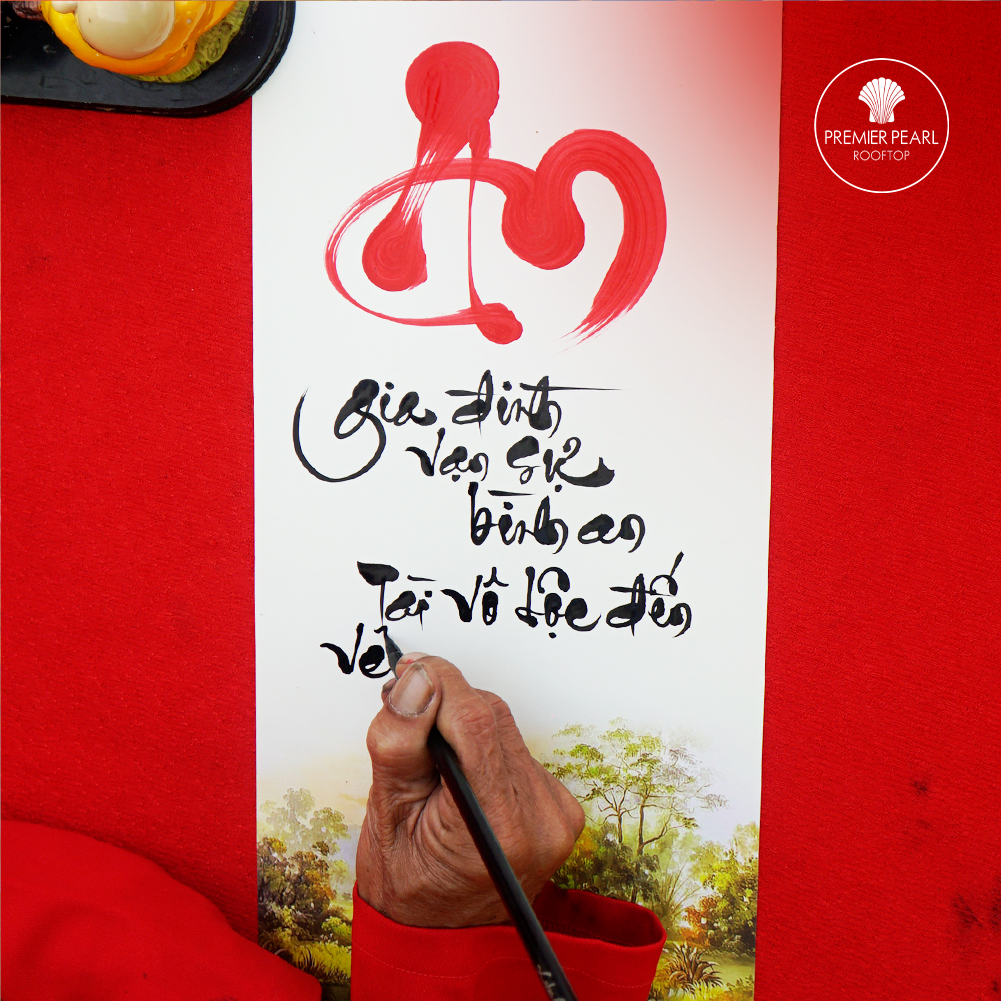 PREMIER PEARL
ROOFTOP
An
Gia đình
vạn sự
bình an
Tài vô Lộc đến